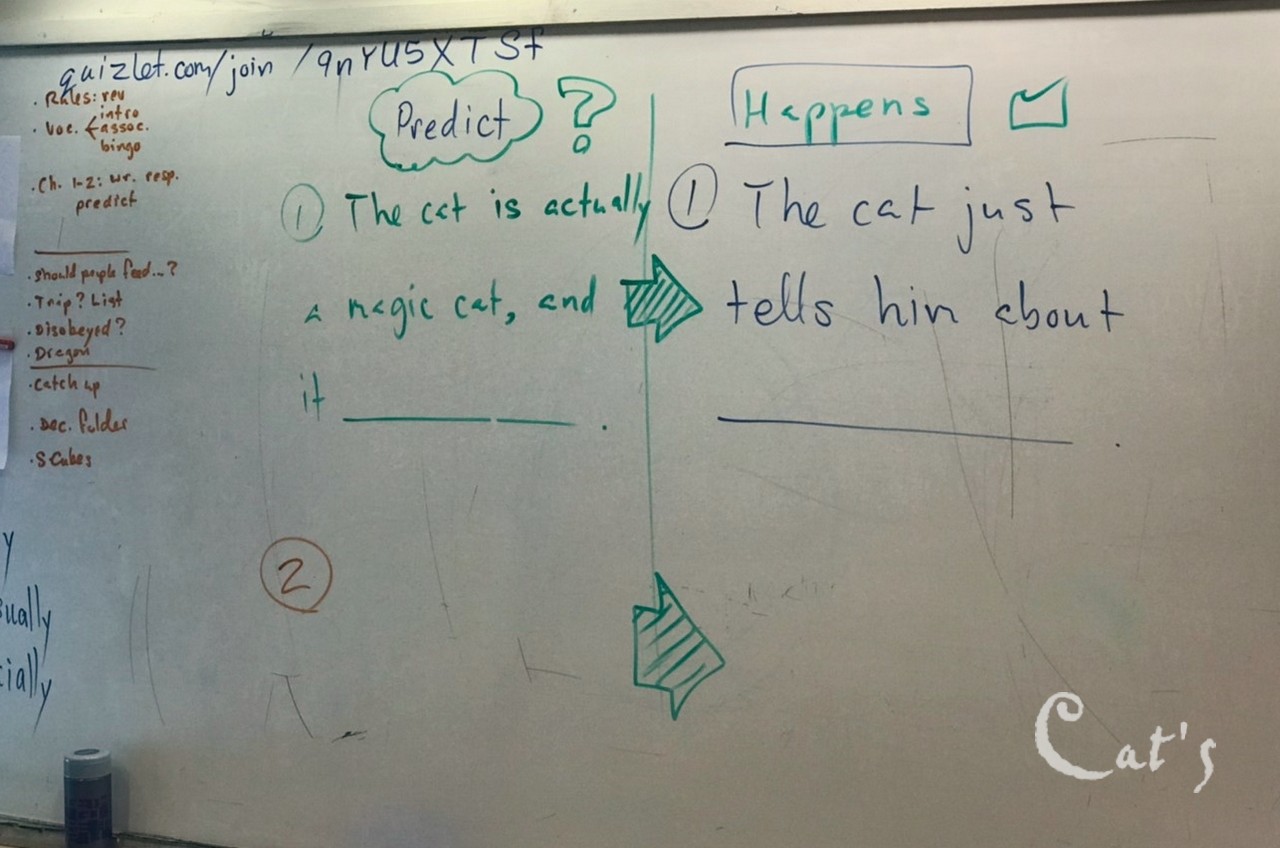 quizlet.com/join /9nYU5XTSf
. Rules: rev
. Voc. intro
assoc.
bingo
. Ch. 1-2: wr. resp.
predict
. Should people feed...?
. Trip? List
. Disobeyed?
. Dragon
. Catch up
. Doc. folder
. S Cubes
y
ually
cially
Predict ?
① The cat is actually
a magic cat, and
it ______ ____ .
②
Happens
① The cat just
tells him about
____________ .
Cat's